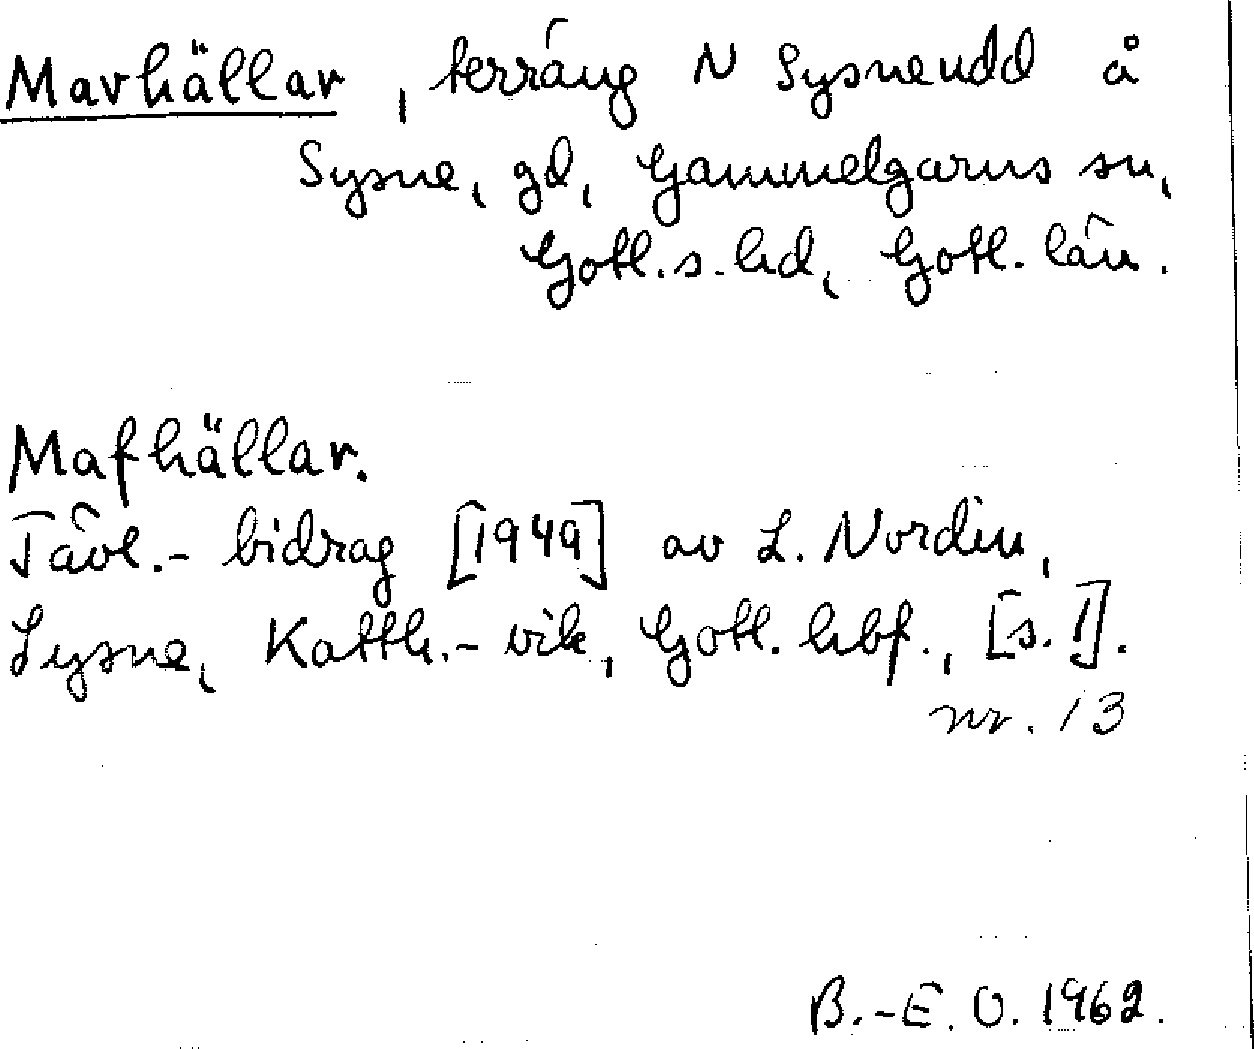 Mavhällar, terräng N Sysneudd å
Sysne, gd, Gammelgarns sn,
Gotl. s. hd, Gotl. län.
Mafhällar.
Tävl.- bidrag [1949] av L. Nordin,
Sysne, Katth.- vik, Gotl. hbf., [s. 1].
nr. 13
B.-E. O. 1962.